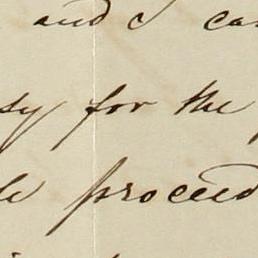 and I ca
sy for the
le proceed